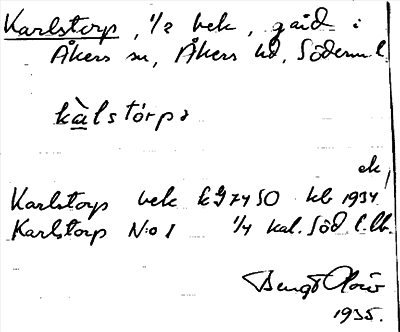 Karlstorp, 1/2 bek, gård i
Åkers sn, Åkers hd, Söderm. l.
kàlstórpə
ek
Karlstorp bek EG7450 kb 1934
Karlstorp N:o 1 1/4 kal. Söd l. Lb.
Bengt
1935.